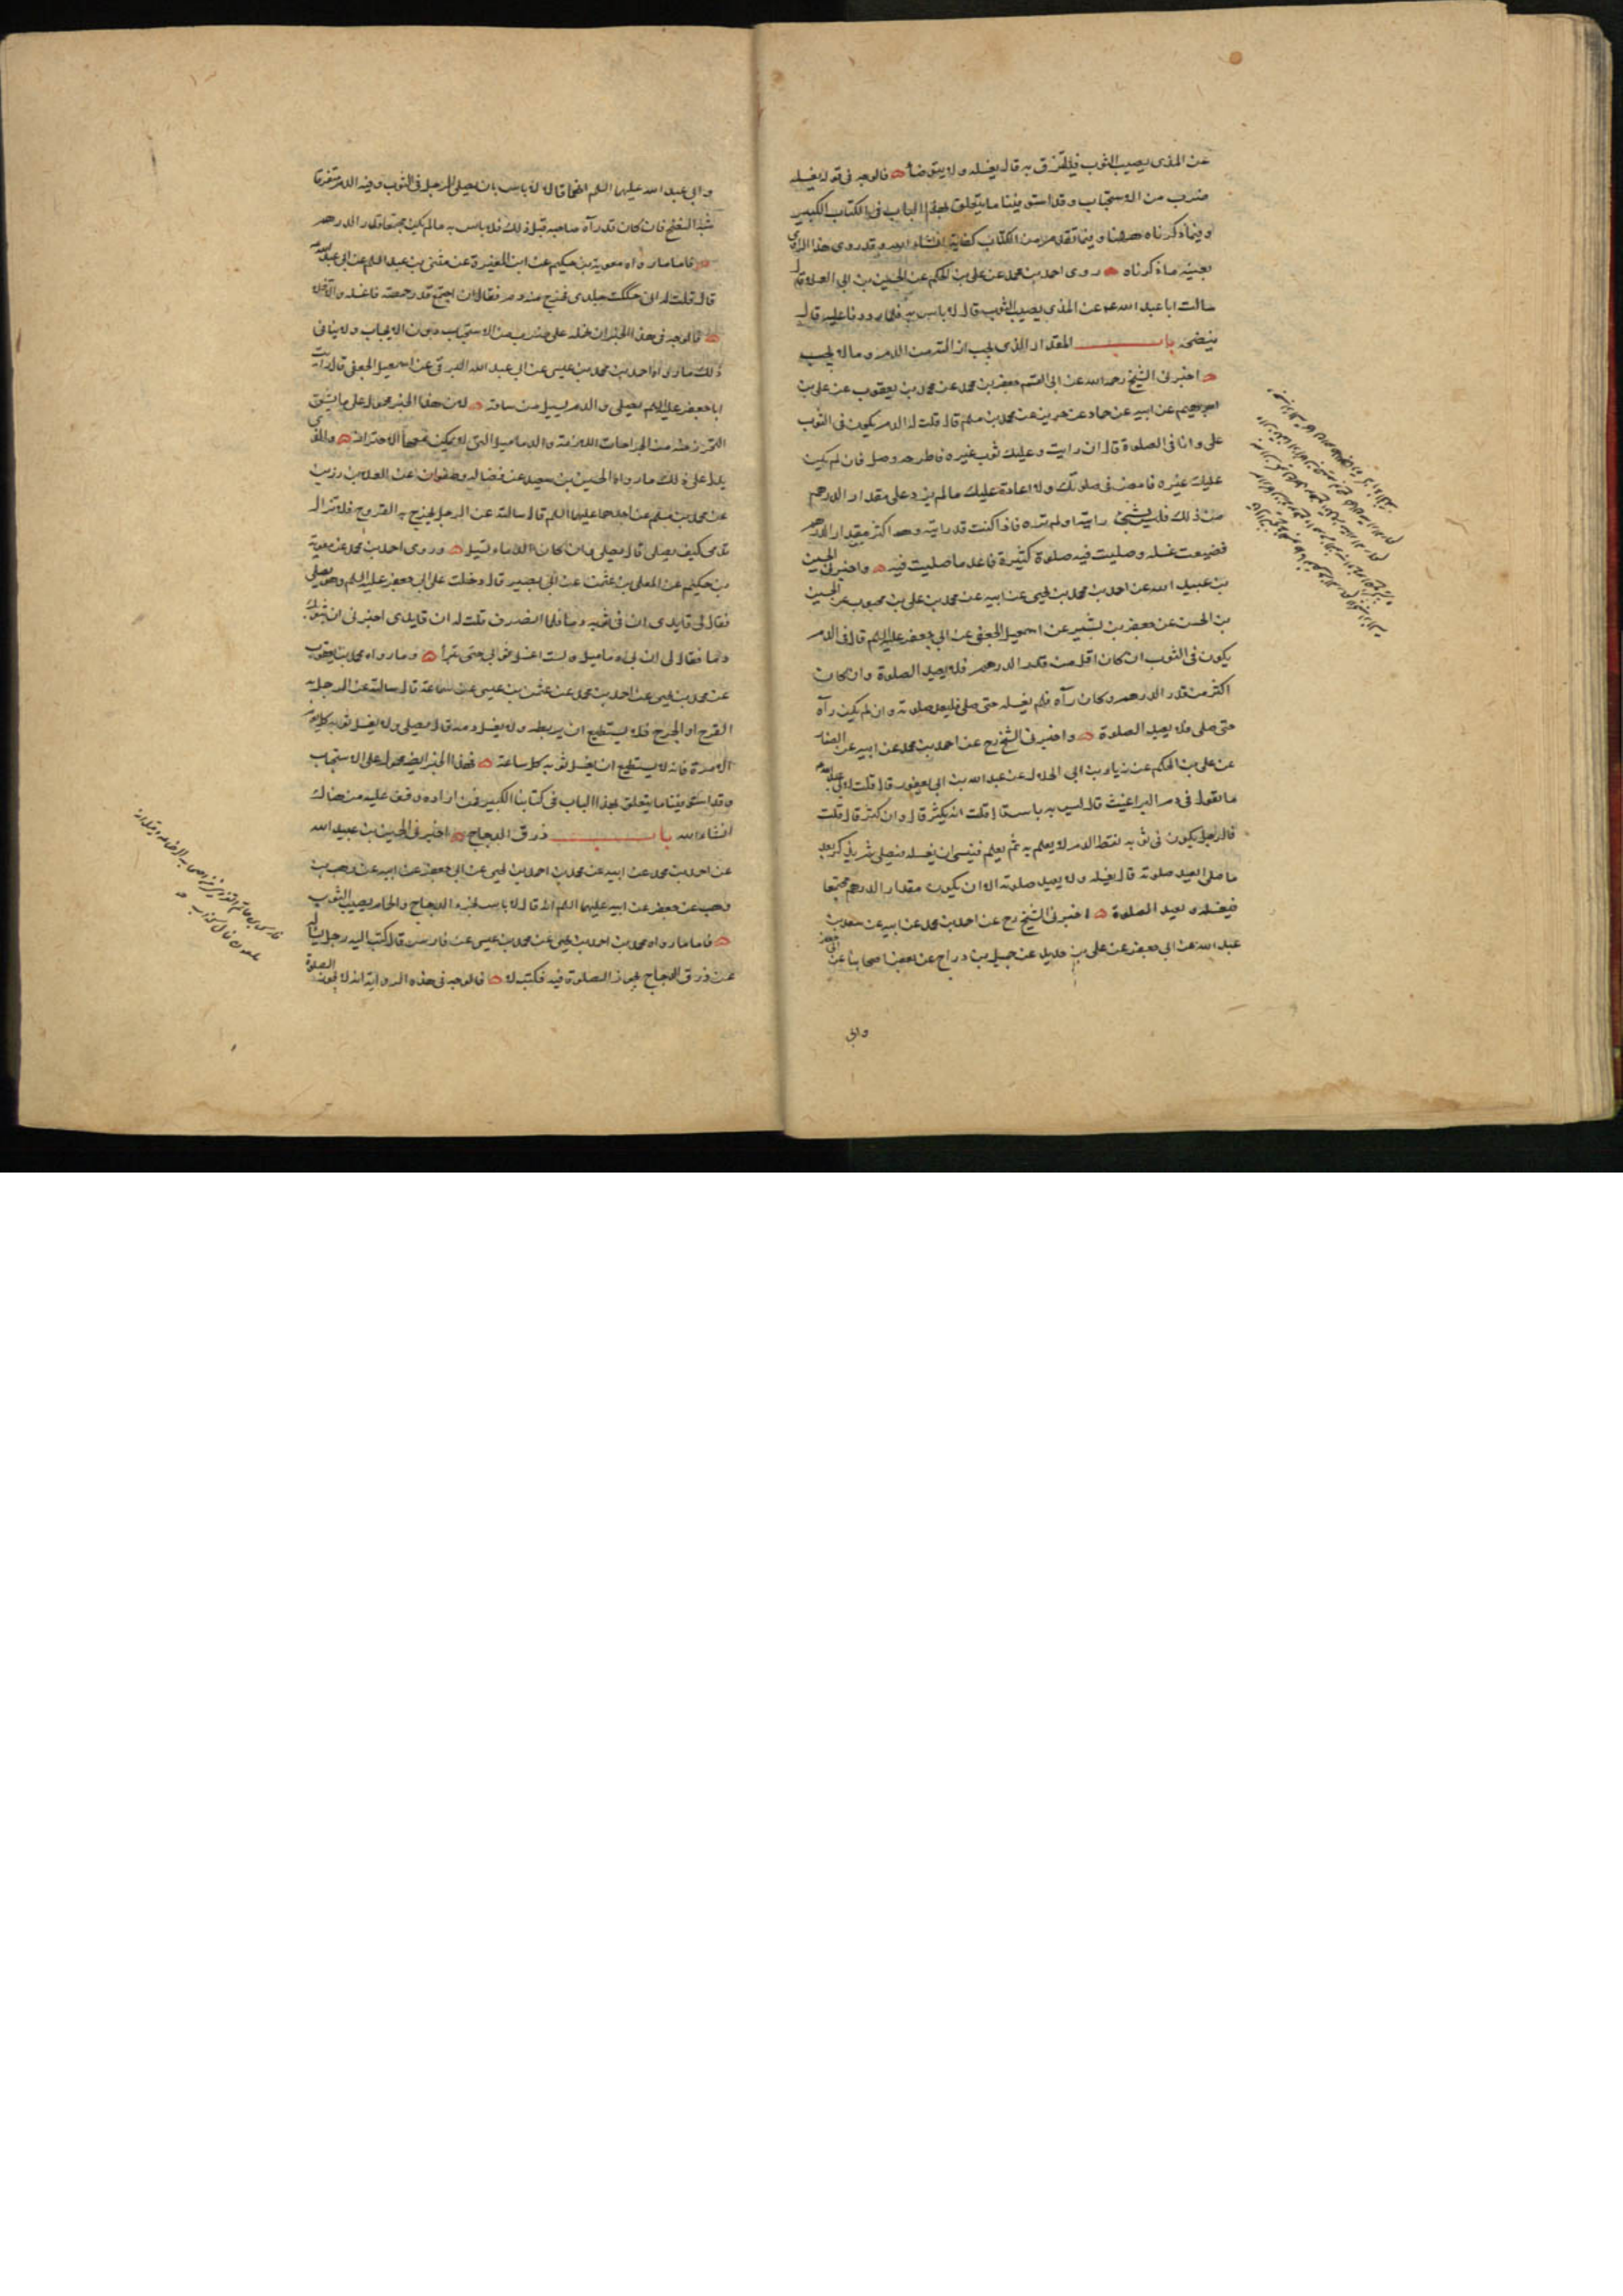 عن المذى يصيب الثوب فيلتزق به قال يغسله ولا يتوضأ فالوجه فى قوله يغسله
ضرب من الاستحباب وقد استوفينا ما يتعلق بهذا الباب فى الكتاب الكبير
وفيما ذكرناه ههنا وفيما تقدم من الكتاب كفاية انشاء الله وقد روى هذا الراوى
بعينه ما ذكرناه روى احمد بن محمد عن على بن الحكم عن الحسين بن ابى العلا قال
سالت ابا عبد الله عن المذى يصيب الثوب قال لا باس به فلما رددنا عليه قال
ينضحه باب المقدار الذى يجب ازالته من الدم وما لا يجب
اخبرنى الشيخ رحمه الله عن ابى القسم جعفر بن محمد عن محمد بن يعقوب عن على بن
ابرهيم عن ابيه عن حماد عن حريز عن محمد بن مسلم قال قلت له الدم يكون فى الثوب
على وانا فى الصلوة قال ان رايت وعليك ثوب غيره فاطرحه وصل فان لم يكن
عليك غيره فامض فى صلوتك ولا اعادة عليك ما لم يزد على مقدار الدرهم
من ذلك فليس بشئ رايته او لم تره فاذا كنت قد رايته وهو اكثر من مقدار الدرهم
فضيعت غسله وصليت فيه صلوة كثيرة فاعد ما صليت فيه واخبرنى الحسين
بن عبيد الله عن احمد بن محمد بن يحيى عن ابيه عن محمد بن على بن محبوب عن الحسين
بن الحسن عن جعفر بن بشير عن اسمعيل الجعفى عن ابى جعفر عليه السلم قال فى الدم
يكون فى الثوب ان كان اقل من قدر الدرهم فلا يعيد الصلوة وان كان
اكثر من قدر الدرهم وكان رآه فلم يغسله حتى صلى فليعد صلوته وان لم يكن رآه
حتى صلى فلا يعيد الصلوة واخبرنى الشيخ رح عن احمد بن محمد عن ابيه عن الصفار
عن على بن الحكم عن زياد بن ابى الحلال عن عبد الله بن ابى يعفور قال قلت لابى عبد الله
ما تقول فى دم البراغيث قال ليس به باس قال قلت انه يكثر قال وان كثر قال قلت
فالرجل يكون فى ثوبه نقط الدم لا يعلم به ثم يعلم فينسى ان يغسله فيصلى ثم يذكر بعد
ما صلى ايعيد صلوته قال يغسله ولا يعيد صلوته الا ان يكون مقدار الدرهم مجتمعا
فيغسله ويعيد الصلوة اخبرنى الشيخ رح عن احمد بن محمد عن ابيه عن سعد بن
عبد الله عن ابى جعفر عن على بن حديد عن جميل بن دراج عن بعض اصحابنا عن ابى جعفر
وابى
وابى عبد الله عليهما السلم انهما قالا لا باس بان يصلى الرجل فى الثوب وفيه الدم متفرقا
شبه النضح فان كان قد رآه صاحبه قبل ذلك فلا باس به ما لم يكن مجتمعا قدر الدرهم
فاما ما رواه معوية بن حكيم عن ابن المغيرة عن مثنى بن عبد السلم عن ابى عبد الله
قال قلت له انى حككت جلدى فخرج منه دم فقال ان اجتمع قدر حمصة فاغسله والا فلا
فالوجه فى هذا الخبر ان نحمله على ضرب من الاستحباب دون الايجاب ولا ينافى
ذلك ما رواه احمد بن محمد بن عيسى عن ابى عبد الله البرقى عن اسمعيل الجعفى قال رايت
ابا جعفر عليه السلم يصلى والدم يسيل من ساقه لان هذا الخبر محمول على ما يشق
التحرز منه من الجراحات اللازمة والدماميل التى لا يمكن معها الاحتراز والذى
يدل على ذلك ما رواه الحسين بن سعيد عن فضالة وصفوان عن العلا بن رزين
عن محمد بن مسلم عن احدهما عليهما السلم قال سالته عن الرجل يخرج به القروح فلا تزال
تدمى كيف يصلى قال يصلى وان كان الدماء تسيل وروى احمد بن محمد عن معوية
بن حكيم عن المعلى بن عثمن عن ابى بصير قال دخلت على ابى جعفر عليه السلم وهو يصلى
فقال لى قايدى ان فى ثوبه دما فلما انصرف قلت له ان قايدى اخبرنى ان بثوبك
دما فقال لى ان بى دماميل ولست اغسل ثوبى حتى تبرأ وما رواه محمد بن يعقوب
عن محمد بن يحيى عن احمد بن محمد عن عثمن بن عيسى عن سماعة قال سالته عن الرجل به
القرح او الجرح فلا يستطيع ان يربطه ولا يغسل دمه قال يصلى ولا يغسل ثوبه كل يوم
الا مرة فانه لا يستطيع ان يغسل ثوبه كل ساعة فهذا الخبر ايضا محمول على الاستحباب
وقد استوفينا ما يتعلق بهذا الباب فى كتابنا الكبير فمن اراده وقف عليه من هناك
انشاء الله باب ذرق الدجاج اخبرنى الحسين بن عبيد الله
عن احمد بن محمد عن ابيه عن محمد بن احمد بن يحيى عن ابى جعفر عن ابيه عن وهب بن
وهب عن جعفر عن ابيه عليهما السلم انه قال لا باس بخرء الدجاج والحمام يصيب الثوب
فاما ما رواه محمد بن احمد بن يحيى عن محمد بن عيسى عن فارس قال كتب اليه رجل يسأله
عن ذرق الدجاج يجوز الصلوة فيه فكتب لا فالوجه فى هذه الرواية انه لا يجوز الصلوة